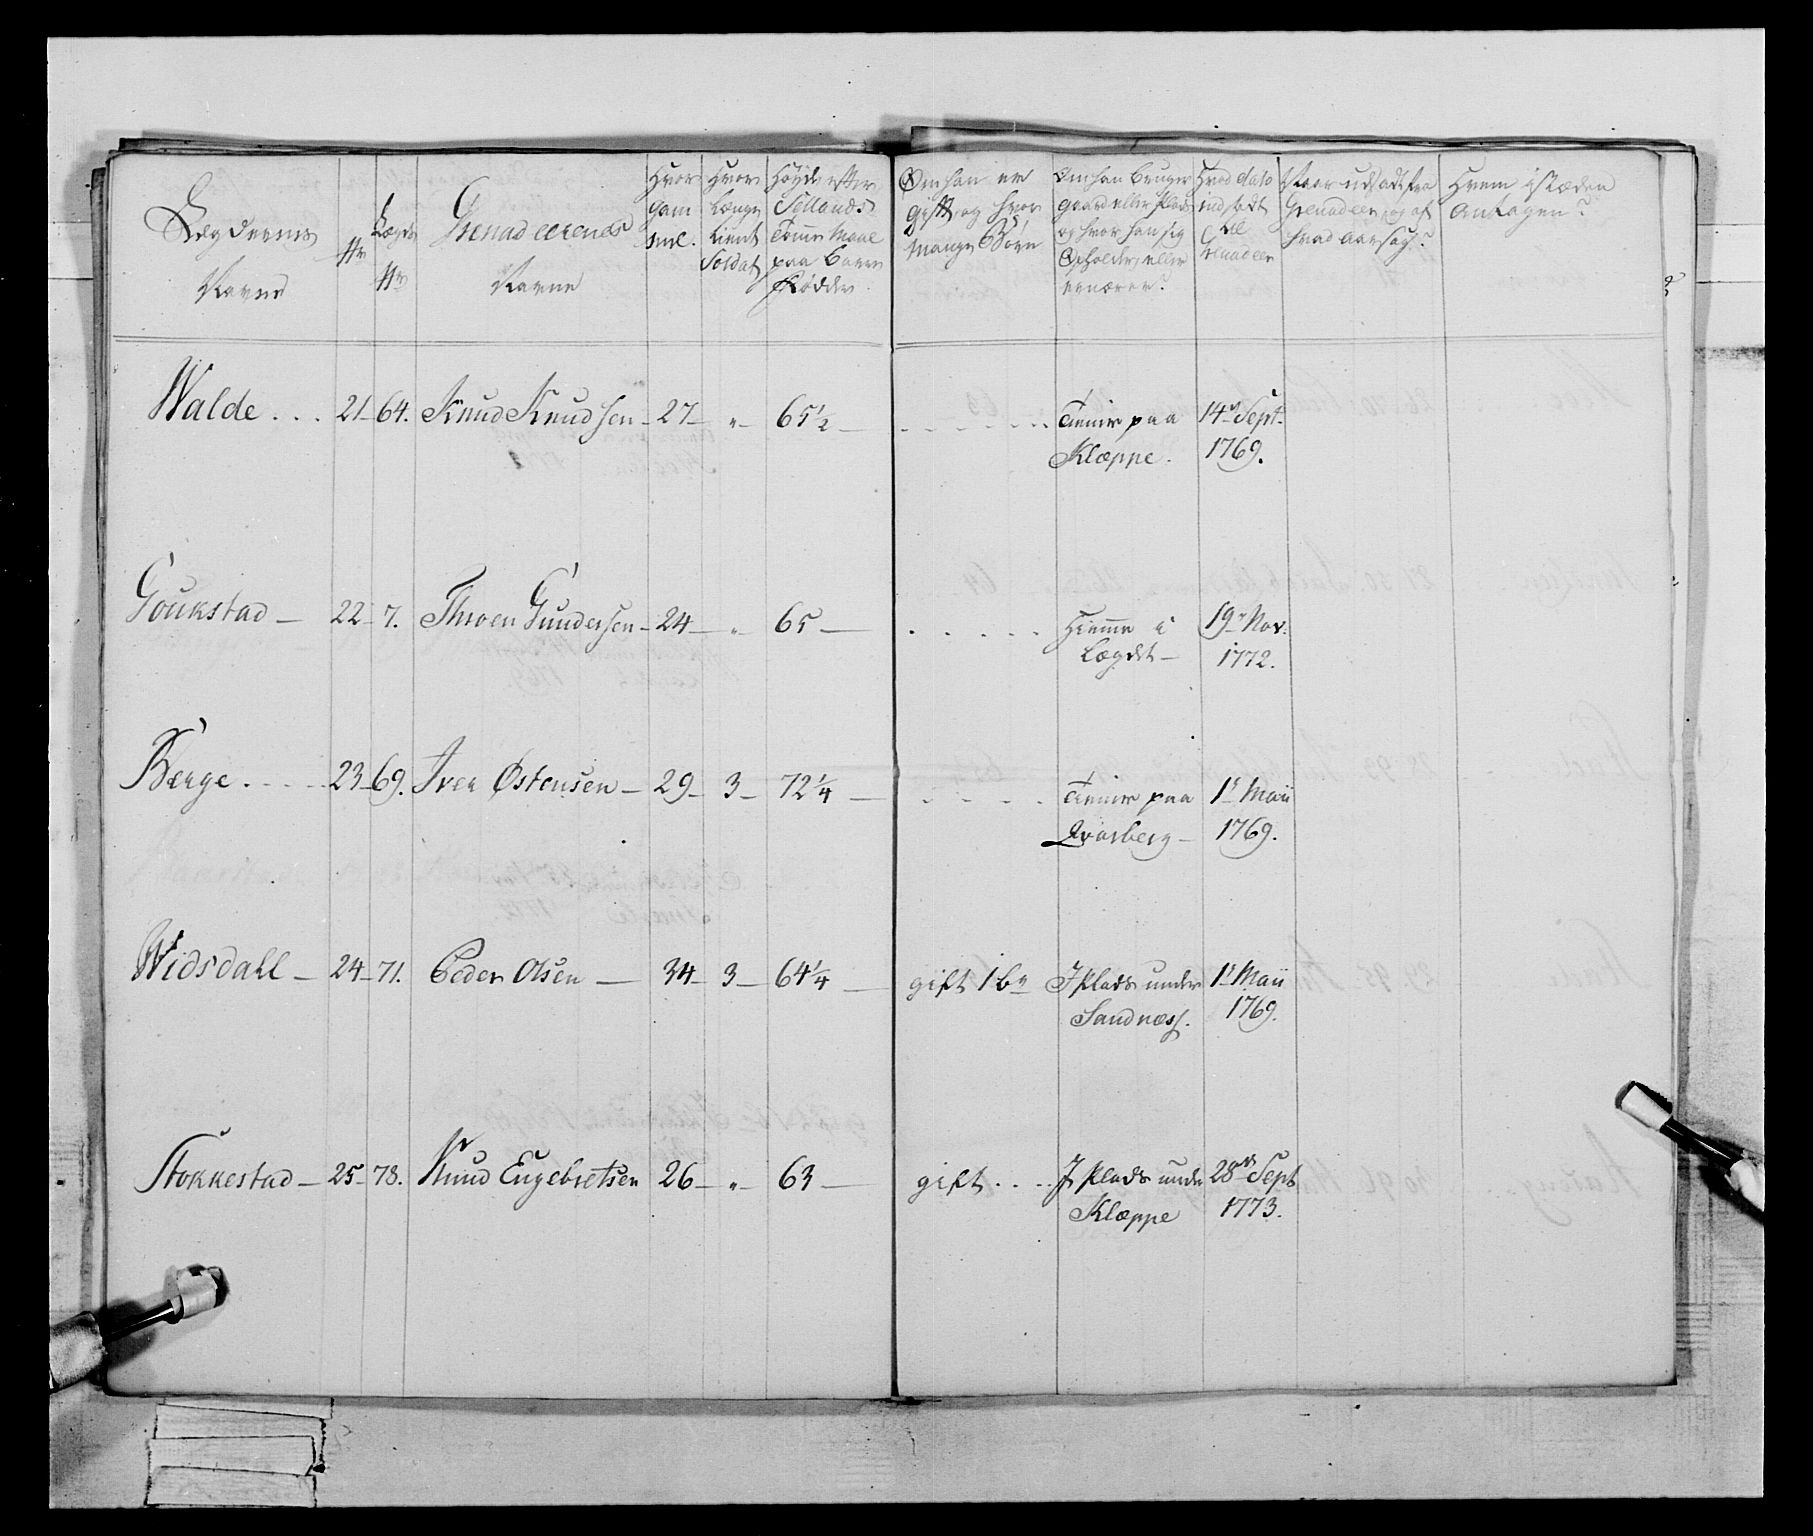 Lægdernes
Navne
No
Lægds
No
Grenadeerenes
Navne
Hvor
Gam
mel.
Hvor
Længe
tient
Soldat
Høyde efter
Sellands
Tomme Maal
paa Barre
Fødder.
Om han er
gift, og hvor
mange Børn
Om han Bruger
gaard eller Plads
og hvor han sig
Opholder, eller
ernærer?
Hvad dato
indsadt
til
Grenadeer
Naar udsadt fra
Grenadeer, og af
hvad Aarsag?
Hvem i Stæden
Antagen?
Walde . . . 21 - 64. Knud Knudsen - 27 - " - 65 1/2 - . . . . . . Tiener paa 14de Sept.
Klæppe. 1769.
Goukstad - 22 - 7. Throen Gundersen - 24 - " - 65 - . . . . . Hiemme i 19de Nov:
Lægdet - 1772.
Berge . . . . 23 - 69. Iver Østensen - 29 - 3 - 72 1/4 - . . . . Tiener paa 1te Maii
Qvarberg - 1769.
Widsdahl - 24 - 71. Peder Olsen - 34 - 3 - 64 1/4 - gift 1 bn I Plads under 1te Maii
Sandnæss. 1769.
Stokkestad - 25 - 78. Knud Engebretsen 26 - " - 63 - gift . . . . I Plads under 28de Sept
Klæppe 1773.